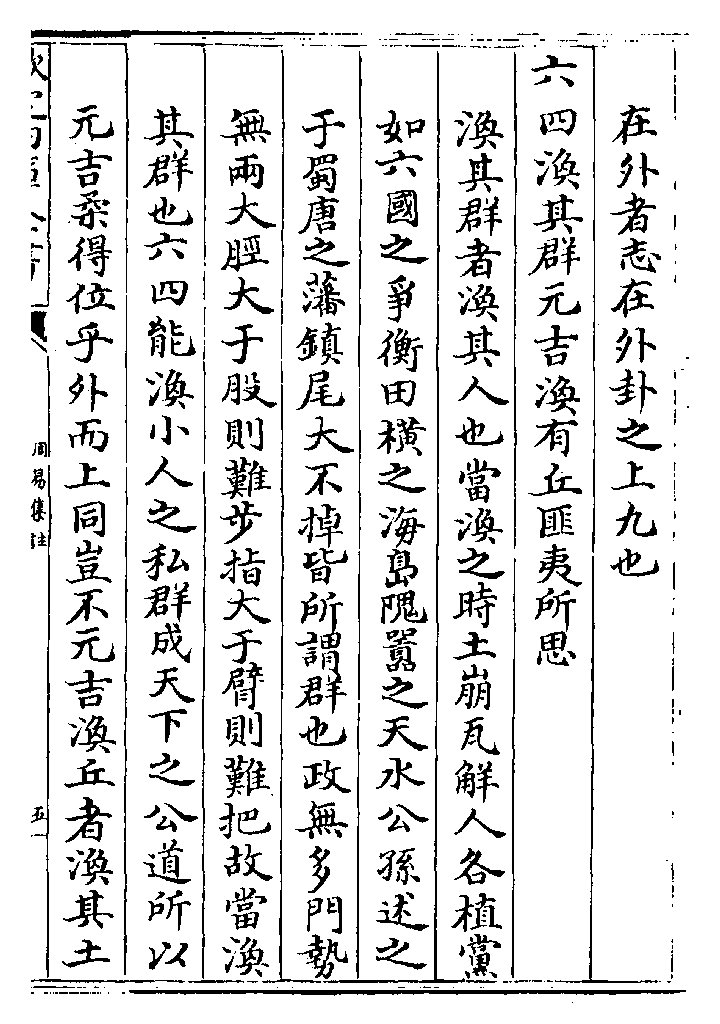 在外者志在外卦之上九也
六四渙其群元吉渙有丘匪夷所思
渙其群者渙其人也當渙之時土崩瓦解人各植黨
如六國之爭衡田橫之海島隗囂之天水公孫述之
于蜀唐之藩鎮尾大不掉皆所謂群也政無多門勢
無兩大脛大于股則難步指大于臂則難把故當渙
其群也六四能渙小人之私群成天下之公道所以
元吉柔得位乎外而上同豈不元吉渙丘者渙其土
周易集註
五一